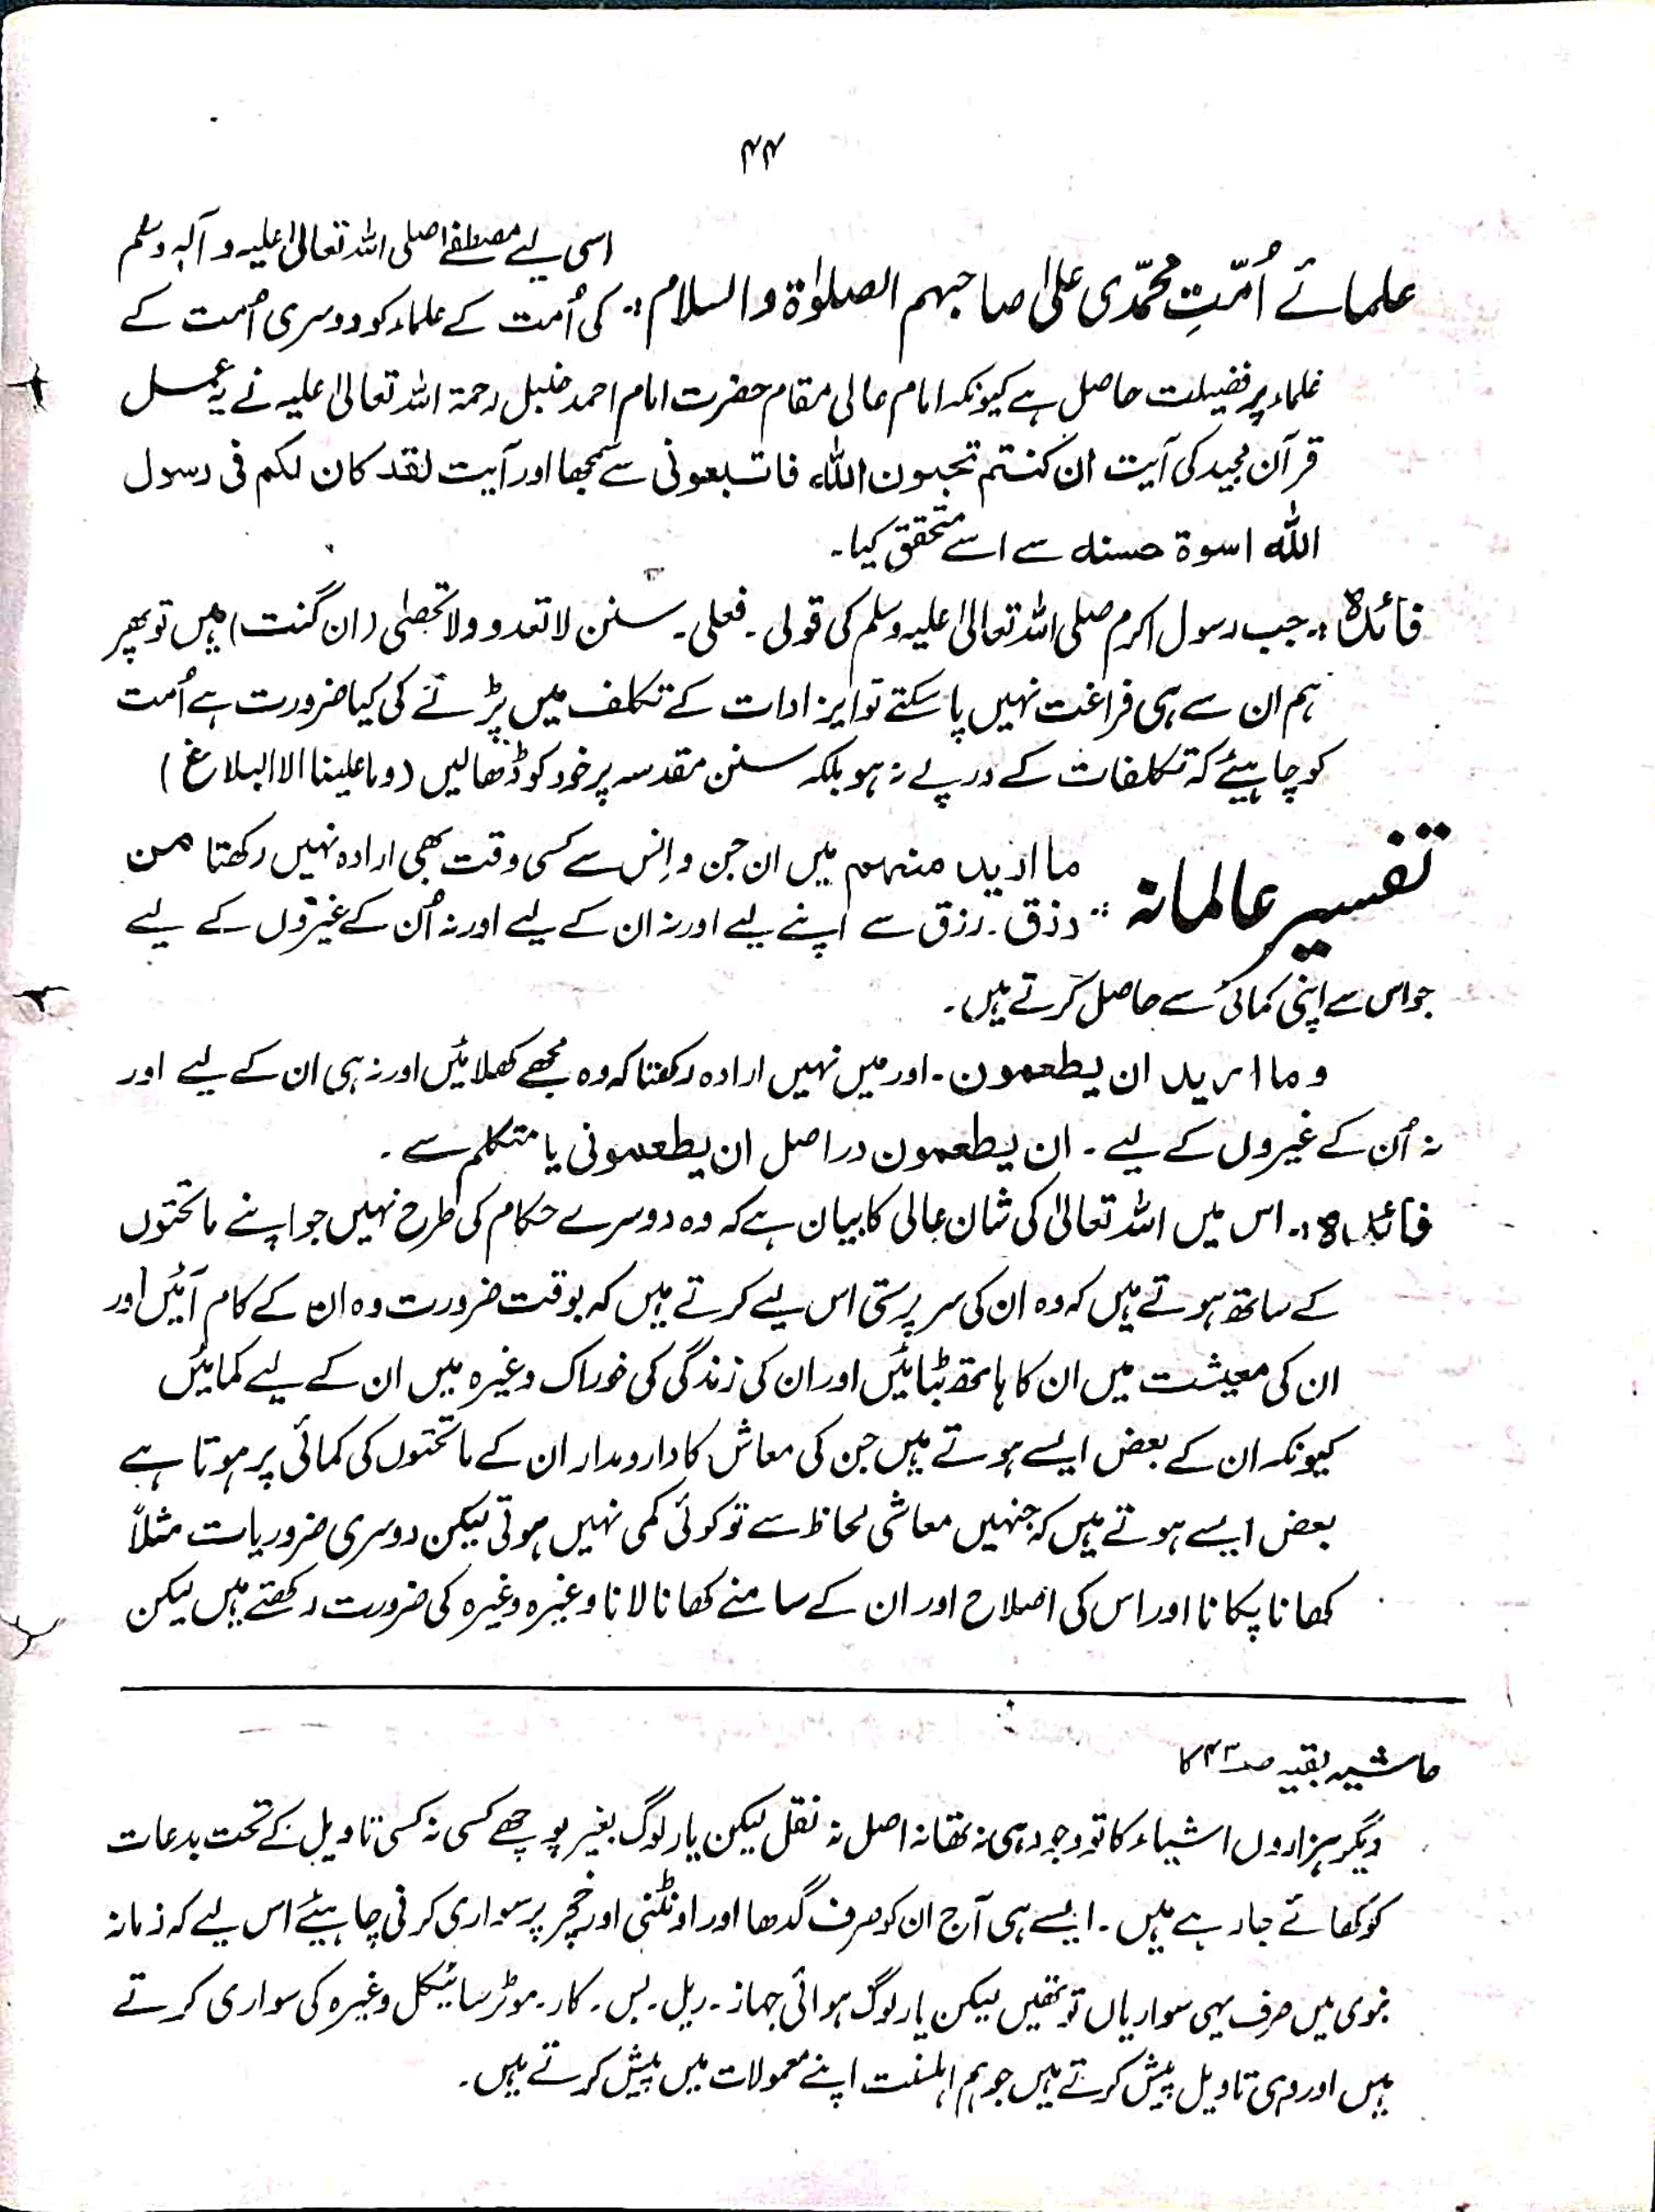 ۴۴
علمائے اُمّتِ محمّدی علیٰ صاحبہم الصلوٰۃ والسلام :. اسی لیے مصطفےٰ صلی اللہ تعالیٰ علیہ و آلہ وسلم
کی اُمت کے علماء کو دوسری اُمت کے
علماء پر فضیلت حاصل ہے کیونکہ امام عالی مقام حضرت امام احمد حنبل رحمۃ اللہ تعالیٰ علیہ نے یہ عمل
قرآن مجید کی آیت ان کنتم تحبون اللہ فاتبعونی سے سمجھا اور آیت لقد کان لکم فی رسول
اللہ اسوۃ حسنہ سے اسے متحقق کیا۔
فائدہ :۔ جب رسول اکرم صلی اللہ تعالیٰ علیہ وسلم کی قولی۔ فعلی۔ سنن لا تعدو ولا تحصٰی (ان گنت) ہیں تو پھر
ہم ان سے ہی فراغت نہیں پا سکتے تو ایزادات کے تکلف میں پڑنے کی کیا ضرورت ہے اُمت
کو چاہیئے کہ تکلفات کے درپے نہ ہو بلکہ سنن مقدسہ پر خود کو ڈھالیں (وما علینا الا البلاغ)
تفسیر عالمانہ :. ما ارید منہم میں ان جن و اِنس سے کسی وقت بھی ارادہ نہیں رکھتا من
رزق۔ رزق سے اپنے لیے اور نہ ان کے لیے اور نہ اُن کے غیروں کے لیے
جو اس سے اپنی کمائی سے حاصل کرتے ہیں۔
وما ارید ان یطعمون۔ اور میں نہیں ارادہ رکھتا کہ وہ مجھے کھلائیں اور نہ ہی ان کے لیے اور
نہ اُن کے غیروں کے لیے۔ ان یطعمون دراصل ان یطعمونی یا متکلم سے۔
فائدہ :۔ اس میں اللہ تعالیٰ کی شان عالی کا بیان ہے کہ وہ دوسرے حکام کی طرح نہیں جو اپنے ماتحتوں
کے ساتھ ہوتے ہیں کہ وہ ان کی سرپرستی اس لیے کرتے ہیں کہ بوقت ضرورت وہ ان کے کام آئیں اور
ان کی معیشت میں ان کا ہاتھ بٹائیں اور ان کی زندگی کی خوراک وغیرہ میں ان کے لیے کمائیں
کیونکہ ان کے بعض ایسے ہوتے ہیں جن کی معاش کا دارومدار ان کے ماتحتوں کی کمائی پر ہوتا ہے
بعض ایسے ہوتے ہیں کہ جنہیں معاشی لحاظ سے تو کوئی کمی نہیں ہوتی لیکن دوسری ضروریات مثلاً
کھانا پکانا اور اس کی اصلاح اور ان کے سامنے کھانا لانا وغیرہ وغیرہ کی ضرورت رکھتے ہیں لیکن
حاشیہ بقیہ صـ۴۳ کا
دیگر ہزاروں اشیاء کا تو وجود ہی نہ تھا نہ اصل نہ نقل لیکن یار لوگ بغیر پوچھے کسی نہ کسی تاویل کے تحت بدعات
کو کھائے جا رہے ہیں۔ ایسے ہی آج ان کو صرف گدھا اور اونٹنی اور خچر پر سواری کرنی چاہیئے اس لیے کہ زمانہ
نبوی میں صرف یہی سواریاں تو تھیں لیکن یار لوگ ہوائی جہاز۔ ریل۔ بس۔ کار۔ موٹر سائیکل وغیرہ کی سواری کرتے
ہیں اور وہی تاویل پیش کرتے ہیں جو ہم اہلسنت اپنے معمولات میں پیش کرتے ہیں۔